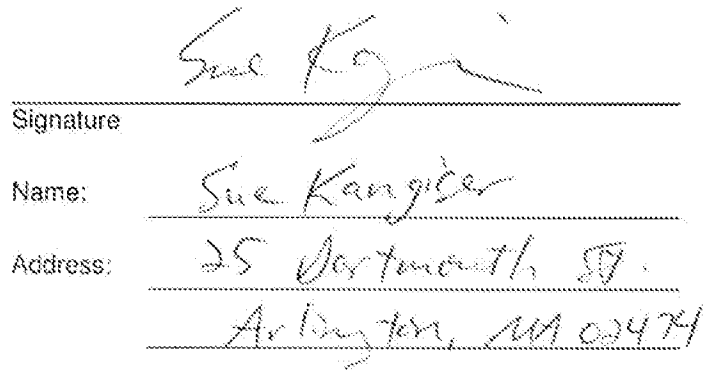 Sue
Signature
Name: Sue Kangiser
Address: 25 Dartmouth St.
Arlington, MA 02474